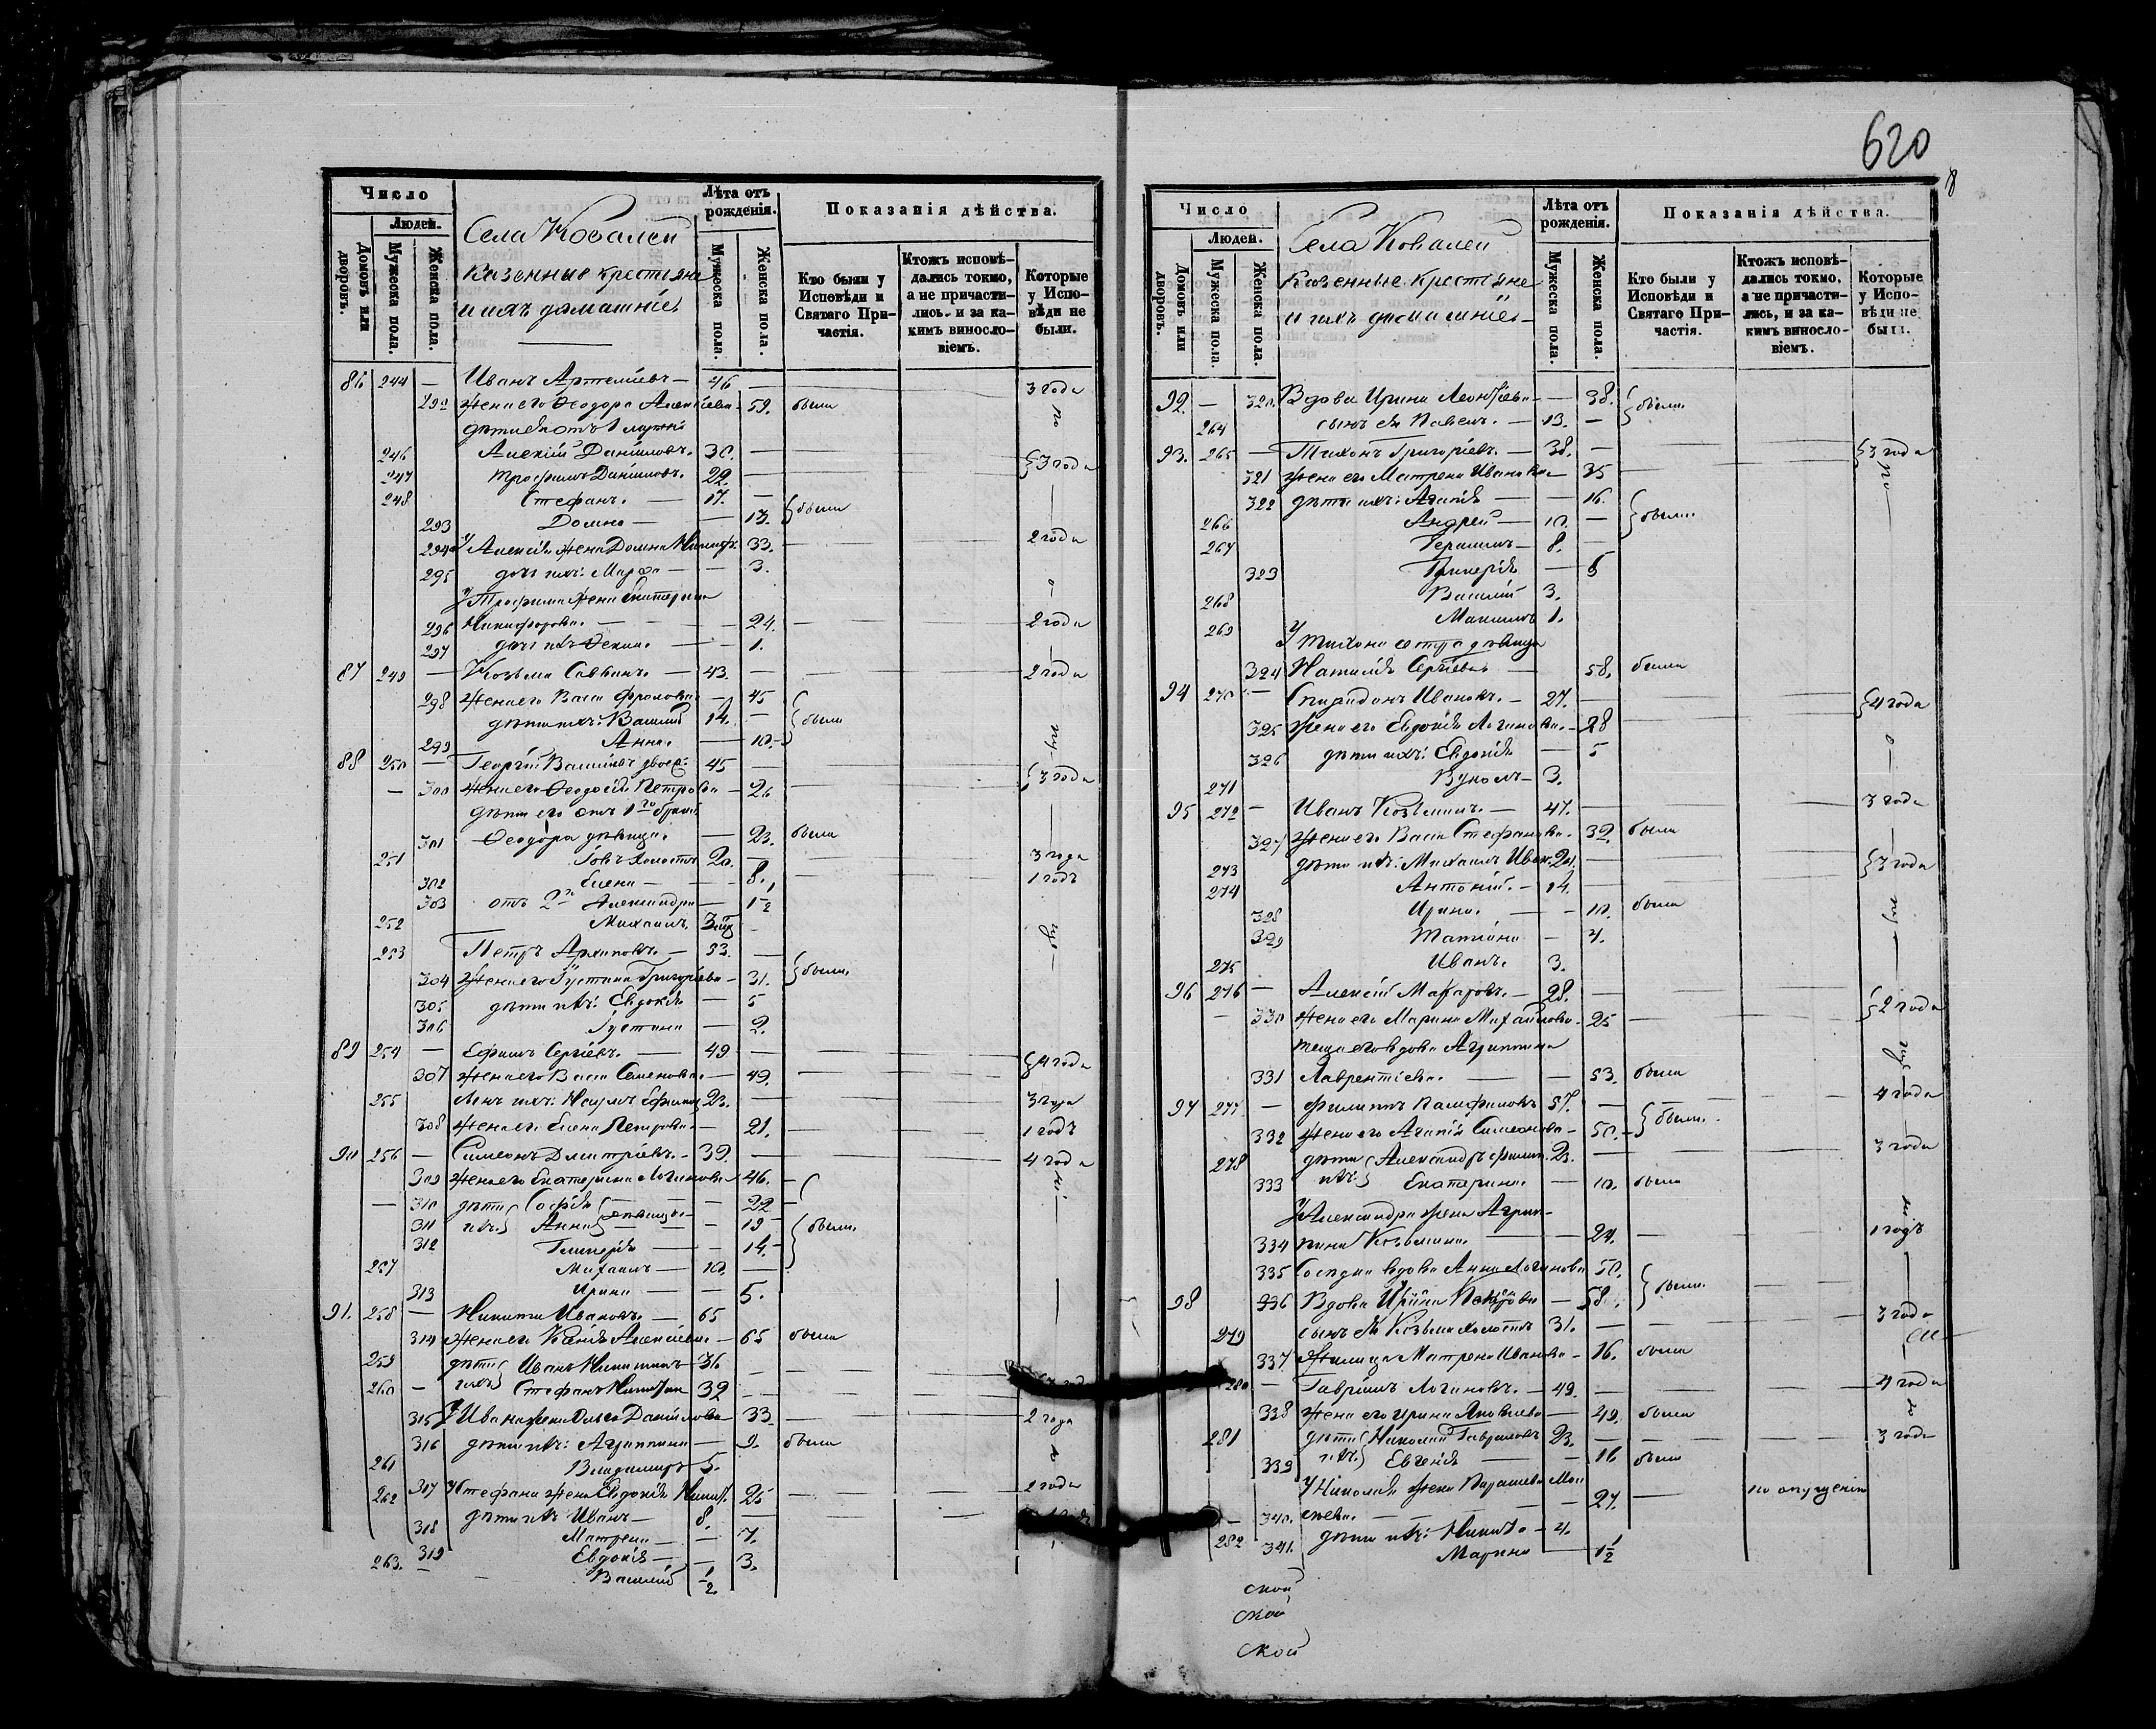 620
Число
Людей.
Домовъ или дворовъ.
Мужеска пола.
Женска пола.
Села Ковалей
Казенные крестьяне
и ихъ домашніе
Лѣта отъ рожденія.
Мужеска пола.
Женска пола.
Показанія дѣйства.
Кто были у Исповѣди и Святаго Причастія.
Ктожъ исповѣдались токмо, а не причастились, и за какимъ винословіемъ.
Которые у Исповѣди не были.
86 244 — Иванъ Артеміевъ — 46 — 3 года
292 жена его Ѳеодора Алексіева — 59. была
дѣти ея отъ 1 мужа
246 Алексій Даніиловъ. 30. — 3 года
247 Трофимъ Даніиловъ. 22. —
248 Стефанъ. — 17. — были
293 Домна — — 13.
294 У Алексія жена Домна Никиф. 33. — 2 года
295 дочь ихъ: Марфа — — 3.
У Трофима жена Екатерина
296 Никифорова. — 24. — 2 года
297 дочь ихъ Ѳекла. — 1.
87 249 — Козьма Саввинъ. — 43. — 2 года
298 жена его Васса Фролова — 45
дѣти ихъ: Василій 14. — были
299 Анна. — 10.
88 250 — Георгій Василіевъ двоеж. 45 — 3 года
— 300 жена его Ѳеодосія Петрова — 26
дѣти его отъ 1го брака
301 Ѳеодора дѣвица. — 23. была
251 Іовъ холостъ 20. — 3 года
302 Елена — — 8. 1 годъ
303 отъ 2го Александра — 1½
252 Михаилъ
253 Петръ Архиповъ. — 33. —
304 жена его Іустина Григоріева — 31. были
305 дѣти ихъ: Евдокія — 5
306 Іустина — 2.
89 254 — Ефимъ Сергіевъ. — 49 — 4 года
307 жена его Васса Семенова. — 49.
255 сынъ ихъ: Наумъ Ефимовъ 23. — 3 года
308 жена его Елена Петрова — 21. 1 годъ
90 256 — Симеонъ Дмитріевъ. — 39. — 4 года
309 жена его Екатерина Логинова 46. —
— 310 дѣти Софія дѣвицы — 22 —
311 ихъ Анна — 19 были
312 Гликерія — 14.
257 Михаилъ — 10. —
313 Ирина — 5.
91. 258 — Никита Ивановъ. — 65
314 жена его Ксенія Алексіева — 65 была
259 дѣти Иванъ Никитинъ 36.
260 — ихъ Стефанъ Никитин 32
315 У Ивана жена Ольга Даніилова — 33 — 2 года
316 дѣти ихъ: Агриппина — 9. была
261 Владимиръ 5.
262 317 У Стефана жена Евдокія Никит. 25 — 2 года
дѣти ихъ Иванъ — 8. —
318 Матрена — — 7.
319 Евдокія — — 3.
263. Василій ½.
Число
Людей.
Домовъ или дворовъ.
Мужеска пола.
Женска пола.
Села Ковалей
Казенные крестьяне
и ихъ домашніе
Лѣта отъ рожденія.
Мужеска пола.
Женска пола.
Показанія дѣйства.
Кто были у Исповѣди и Святаго Причастія.
Ктожъ исповѣдались токмо, а не причастились, и за какимъ винословіемъ.
Которые у Исповѣди не были.
92. — 320. Вдова Ирина Леонтіева — 38. были
264 сынъ ея Павелъ. — 13. —
93. 265 — Тихонъ Григоріевъ. — 38. — 3 года
321 жена его Матрена Иванова — 35
322 дѣти ихъ: Агапія — — 16. были
266 Андрей — 10. —
267 Герасимъ — 8. —
323 Гликерія — 6
268 Василій 3.
269 Максимъ 1.
У Тихона сестра дѣвица
324 Наталія Сергіева — 58. была
94 270 — Спиридонъ Ивановъ. — 27. — 4 года
325 жена его Евдокія Логинова. — 28
326 дѣти ихъ: Евдокія — 5
271 Вуколъ — 3.
95 272 — Иванъ Козьминъ. — 47. — 3 года
327 жена его Васса Стефанова. 39. была
273 дѣти ихъ: Михаилъ Иван. 20. — 3 года
274 Антоній. — 14. —
328 Ирина. — 10. была
329 Татіана — 4.
275 Иванъ. 3.
96 276 — Алексій Макаровъ. — 28. — 2 года
— 330 жена его Марина Михаилова — 25
теща его вдова Агриппина
331 Лаврентіева. — — 53. была
97 277. — Филиппъ Памфиловъ 57. — 4 года
332 жена его Агапія Симеонова — 50. — были.
278 дѣти Александръ Филип. 23. — 3 года
333 ихъ Екатерина — 10. была
У Александра жена Агрип-
334 пина Козьмина. — 24. — 1 годъ
335 Сосѣдка вдова Анна Логинова 50. были.
98 336 Вдова Ирина Петрова — 58.
279 сынъ ея Козьма холостъ 31. — 3 года
337 Жилица Матрена Иванова — 16. была
280 — Гавріилъ Логиновъ. — 49. — 4 года
338 жена его Ирина Яковлева — 49. была
281 дѣти Николай Гавриловъ 23. — 3 года
339 ихъ Евгенія — 16 была
У Николая жена Параскева Мои-
340. сеева. — — 27. — по опущенію
282 341. дѣти ихъ: Никита — 4.
Марина — 1½
ской
ской
ской